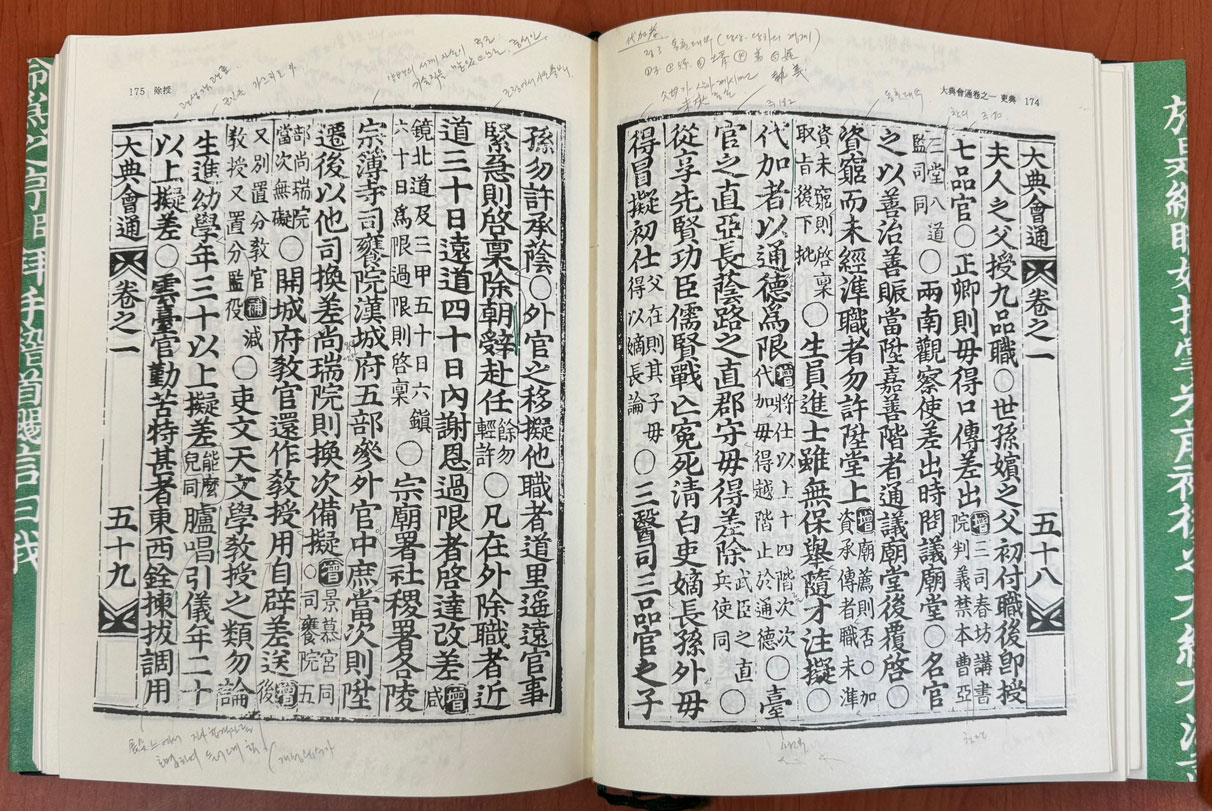 大典會通卷之一 吏典 174
大典會通 卷之一 五十八
夫人之父授九品職〇世孫嬪之父初付職後卽授
七品官〇正卿則毋得口傳差出增三司春坊講書院判義禁本曹亞
三堂八道監司同〇兩南觀察使差出時問議廟堂〇名官
之以善治善賑當陞嘉善階者通議廟堂後覆啓〇
資窮而未經準職者勿許陞堂上增廟薦則否〇加資承傳者職未準
資未窮則啓稟取旨後下批〇生員進士雖無保擧隨才注擬〇
代加者以通德爲限增將仕以上十四階次次代加毋得越階止於通德〇臺
官之直亞長蔭路之直郡守毋得差除武臣之直兵使同〇
從享先賢功臣儒賢戰亡寃死淸白吏嫡長孫外毋
得冒擬初仕父在則其子毋得以嫡長論〇三醫司三品官之子
175 除授
孫勿許承蔭〇外官之移擬他職者道里遙遠官事
緊急則啓稟除朝辭赴任餘勿輕許〇凡在外除職者近
道三十日遠道四十日內謝恩過限者啓達改差增咸
鏡北道及三甲五十日六鎭六十日爲限過限則啓稟〇宗廟署社稷署各陵
宗簿寺司饔院漢城府五部參外官中庶當次則陞
遷後以他司換差尙瑞院則換次備擬增景慕宮同〇司饔院五
部尙瑞院當次無礙〇開城府敎官還作敎授用自辟差送增後
又別置分敎官敎授又置分監役補減〇吏文天文學敎授之類勿論
生進幼學年三十以上擬差能麽兒同臚唱引儀年二十
以上擬差〇雲臺官勤苦特甚者東西銓揀拔調用
大典會通 卷之一 五十九
代加者